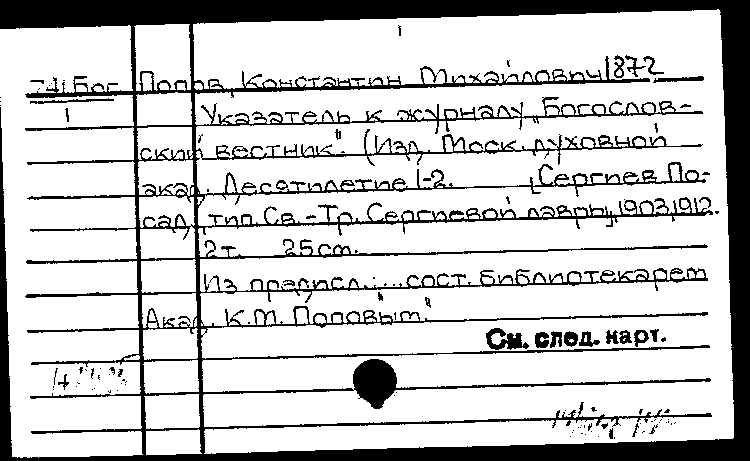 741Бог Попов, Константин Михайлович 1872
1 Указатель к журналу „Богослов-
ский вестник". (Изд. Моск. духовной
акад. Десятилетие 1-2. [Сергиев По-
сад], тип. Св.-Тр. Сергиевой лавры, 1903, 1912.
2 т. 25 cm.
Из предисл.: ...сост. библиотекарем
Акад. К.М. Поповым."
См. след. карт.